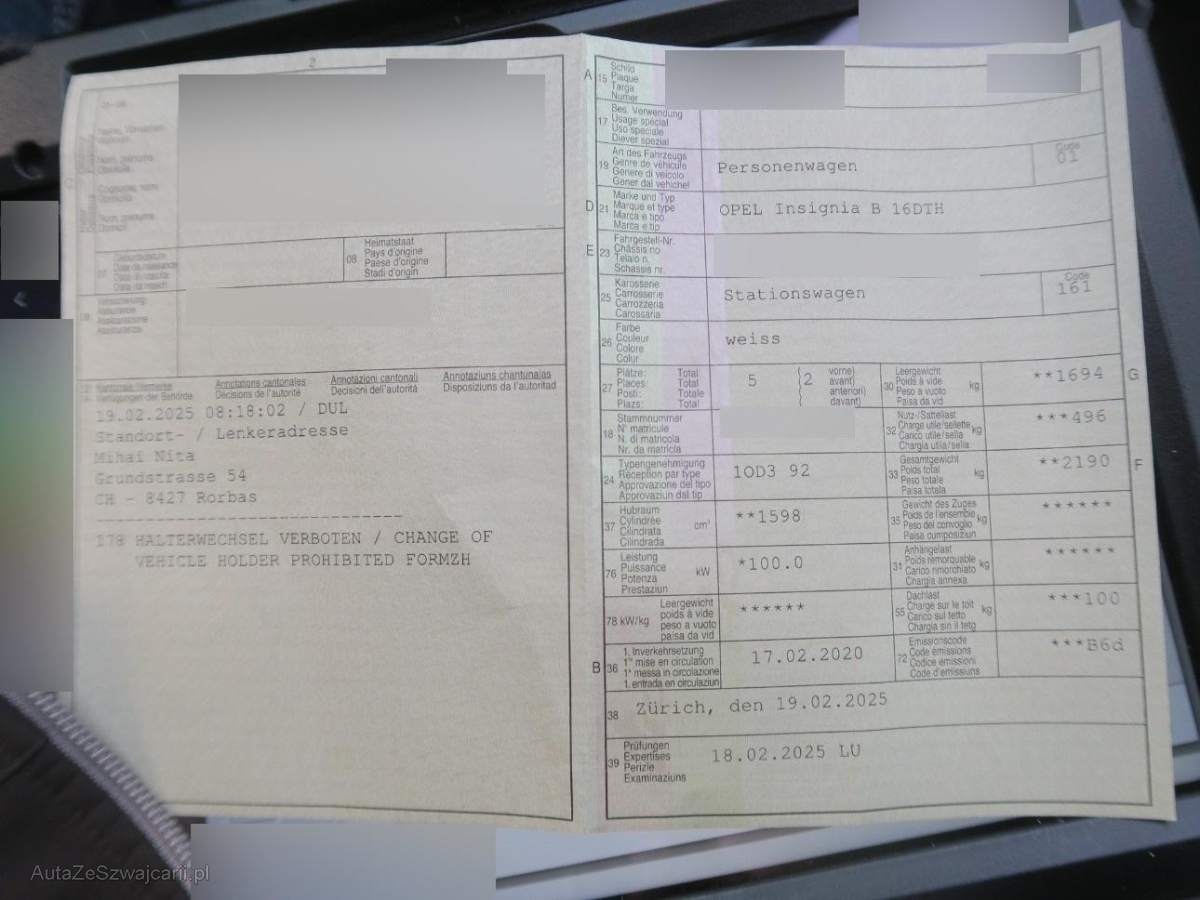 2
01-06
Name, Vornamen
Wohnort
Nom, prénoms
Domicile
Cognome, nomi
Domicilio
Num, prenums
Domicil
07
Geburtsdatum
Data da naschientscha
08
Heimatstaat
Pays d'origine
Paese d'origine
Stadi d'origin
09
Versicherung
Assurance
Assicurazione
Assicuranza
Kantonale Vermerke
Verfügungen der Behörde
Annotations cantonales
Décisions de l'autorité
Annotazioni cantonali
Decisioni dell'autorità
Annotaziuns chantunalas
Disposiziuns da l'autoritad
19.02.2025 08:18:02 / DUL
Standort- / Lenkeradresse
Mihai Nita
Grundstrasse 54
CH - 8427 Rorbas
--------------------------------
178 HALTERWECHSEL VERBOTEN / CHANGE OF
VEHICLE HOLDER PROHIBITED FORMZH
A 15
Schild
Plaque
Targa
Numer
17
Bes. Verwendung
Usage spécial
Uso speciale
Diever spezial
19
Art des Fahrzeugs
Genre de véhicule
Genere di veicolo
Gener dal vehichel
Personenwagen
Code
01
D 21
Marke und Typ
Marque et type
Marca e tipo
Marca e tip
OPEL Insignia B 16DTH
E 23
Fahrgestell-Nr.
Châssis no
Telaio n.
Schassis nr.
25
Karosserie
Carrosserie
Carrozzeria
Carossaria
Stationswagen
Code
161
26
Farbe
Couleur
Colore
Colur
weiss
27
Plätze: Total
Places: Total
Posti: Totale
Plazs: Total
5
(2
vorne)
avant)
anteriori)
davant)
30
Leergewicht
Poids à vide
Peso a vuoto
Paisa da vid
kg
**1694
G
18
Stammnummer
N° matricule
N. di matricola
Nr. da matricla
32
Nutz-/Sattellast
Charge utile/sellette
Carico utile/sella
Chargia utila/sella
kg
***496
24
Typengenehmigung
Réception par type
Approvazione del tipo
Approvaziun dal tip
1OD3 92
33
Gesamtgewicht
Poids total
Peso totale
Paisa totala
kg
**2190
F
37
Hubraum
Cylindrée
Cilindrata
Cilindrada
cm³
**1598
35
Gewicht des Zuges
Poids de l'ensemble
Peso del convoglio
Paisa cumposiziun
kg
******
76
Leistung
Puissance
Potenza
Prestaziun
kW
*100.0
31
Anhängelast
Poids remorquable
Carico rimorchiato
Chargia annexa
kg
******
78 kW/kg
Leergewicht
poids à vide
peso a vuoto
paisa da vid
******
55
Dachlast
Charge sur le toit
Carico sul tetto
Chargia sin il tetg
kg
***100
B 36
1. Inverkehrsetzung
1re mise en circulation
1a messa in circolazione
1. entrada en circulaziun
17.02.2020
72
Emissionscode
Code émissions
Codice emissioni
Code d'emissiuns
***B6d
38
Zürich, den 19.02.2025
39
Prüfungen
Expertises
Perizie
Examinaziuns
18.02.2025 LU
AutaZeSzwajcarii.pl